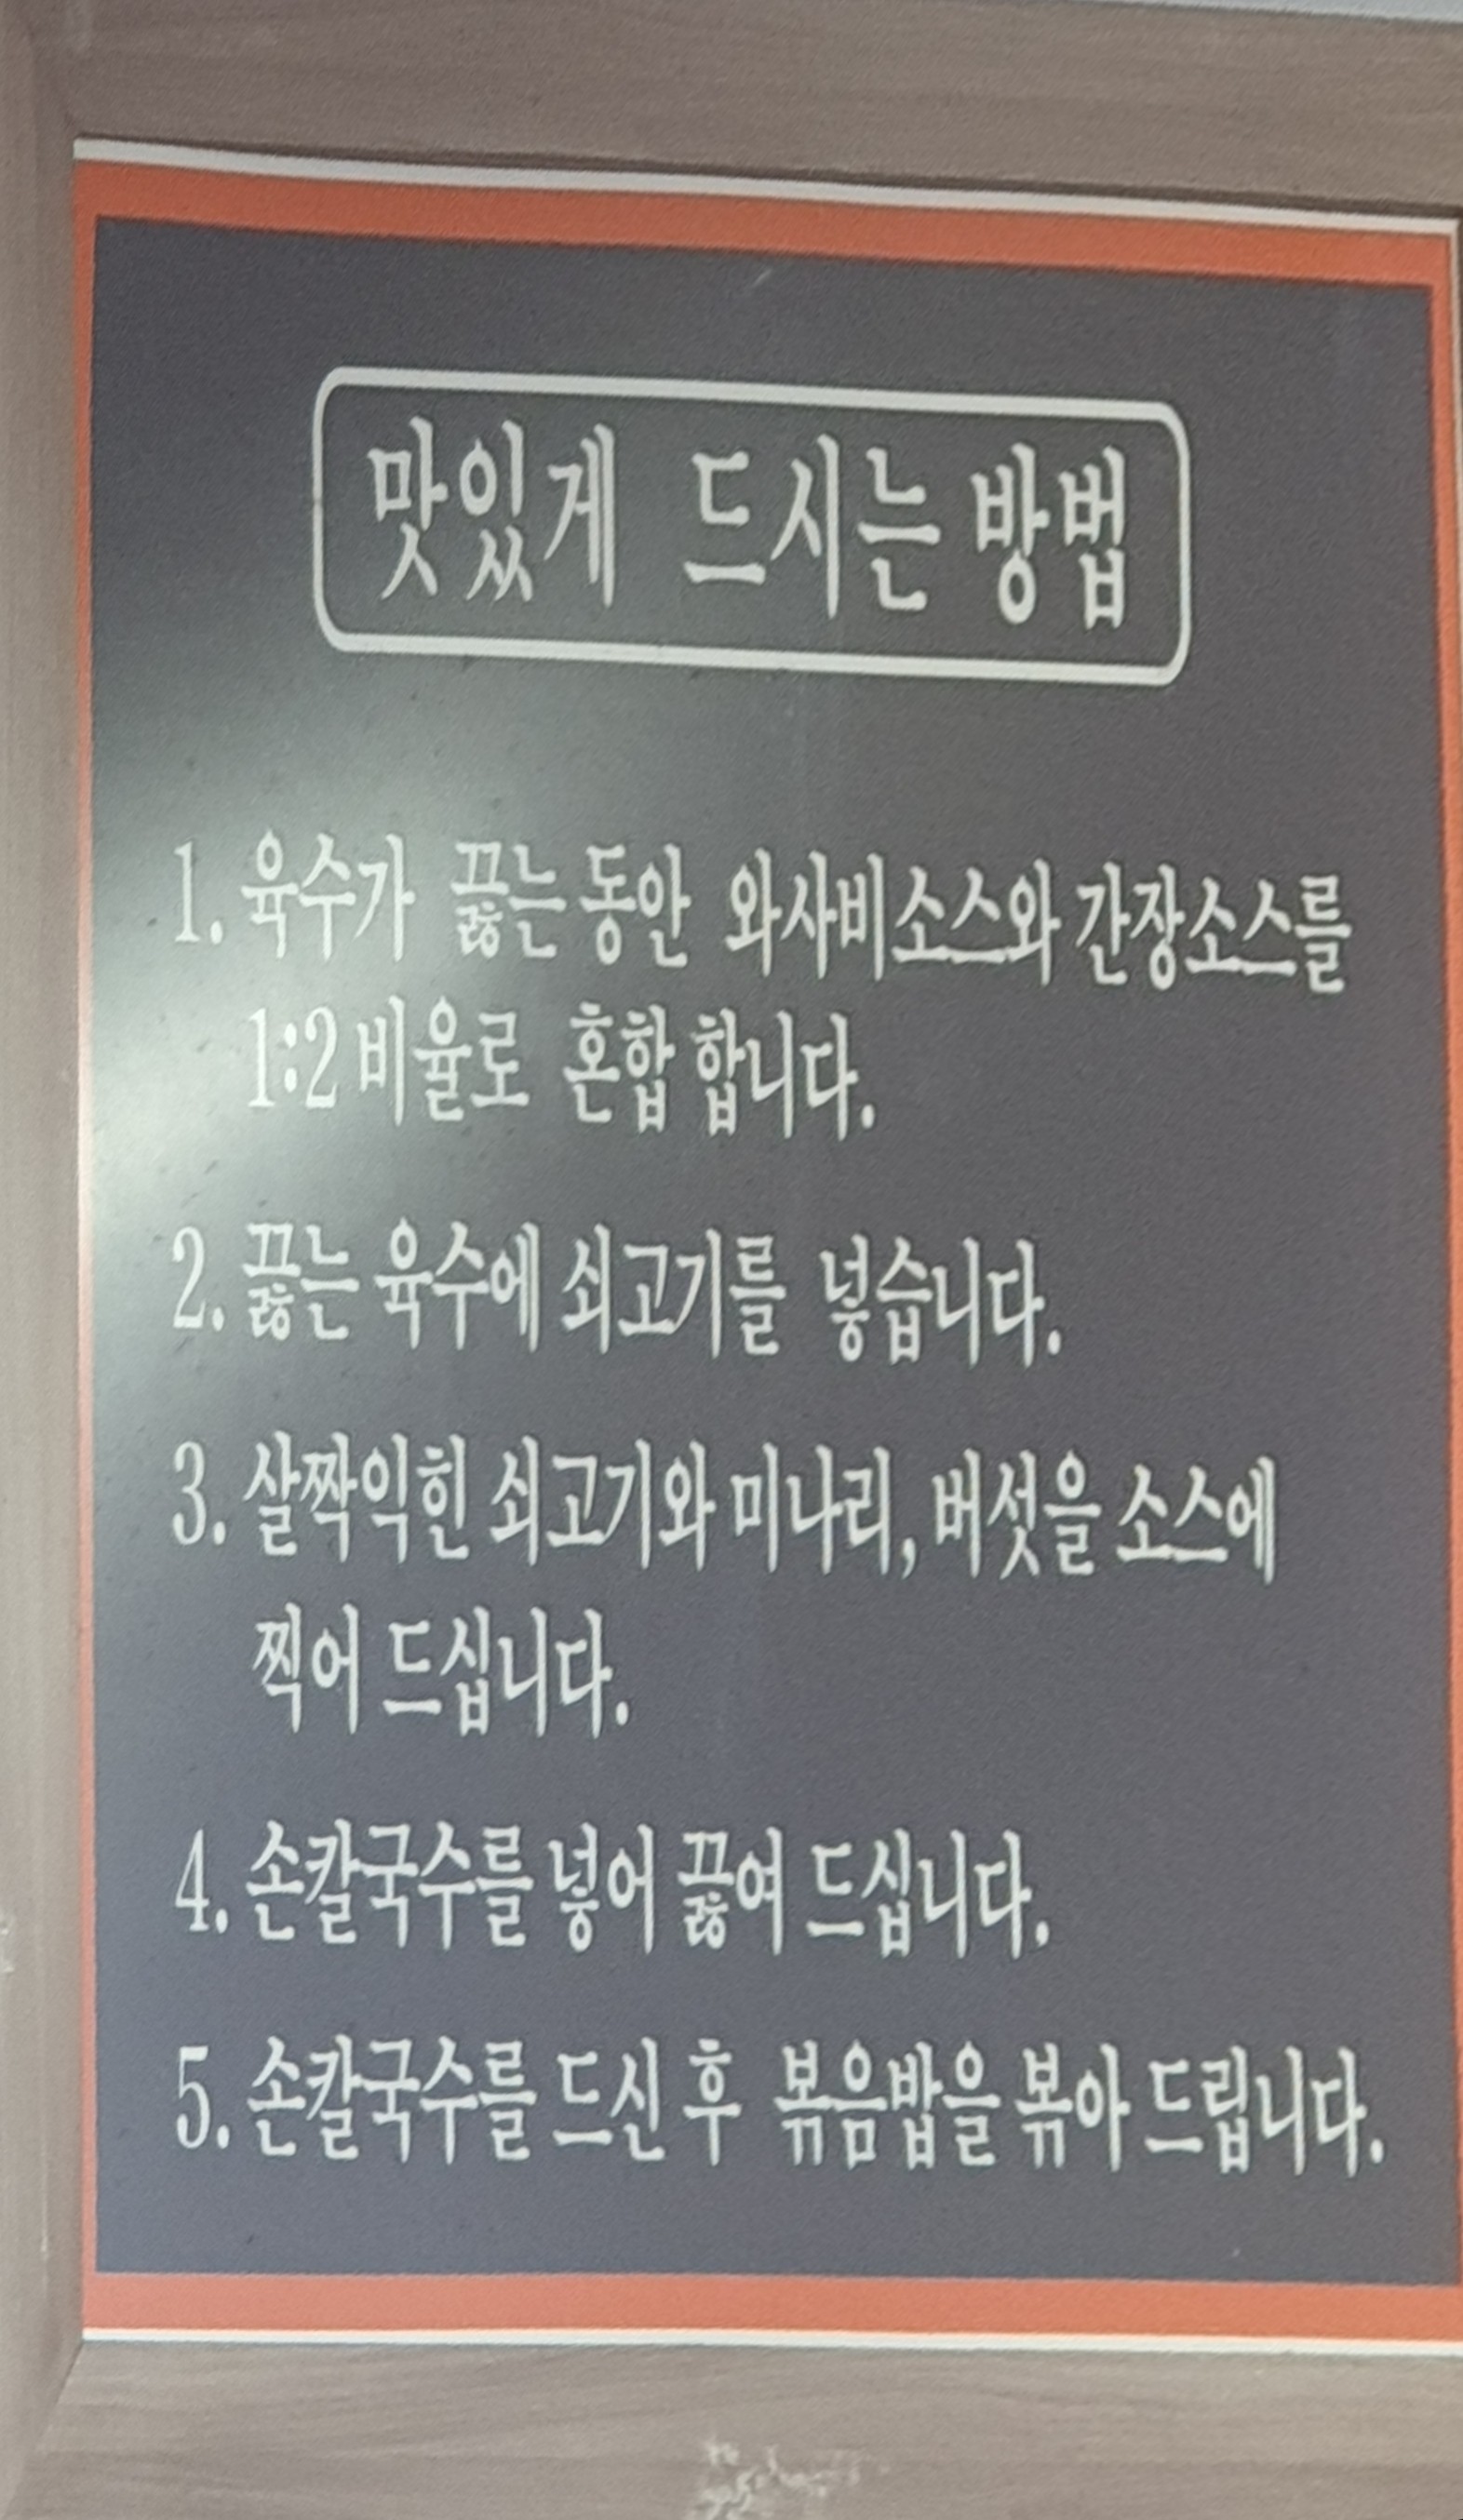 맛있게 드시는 방법
1. 육수가 끓는 동안 와사비소스와 간장소스를
1:2 비율로 혼합 합니다.
2. 끓는 육수에 쇠고기를 넣습니다.
3. 살짝익힌 쇠고기와 미나리, 버섯을 소스에
찍어 드십니다.
4. 손칼국수를 넣어 끓여 드십니다.
5. 손칼국수를 드신 후 볶음밥을 볶아 드립니다.